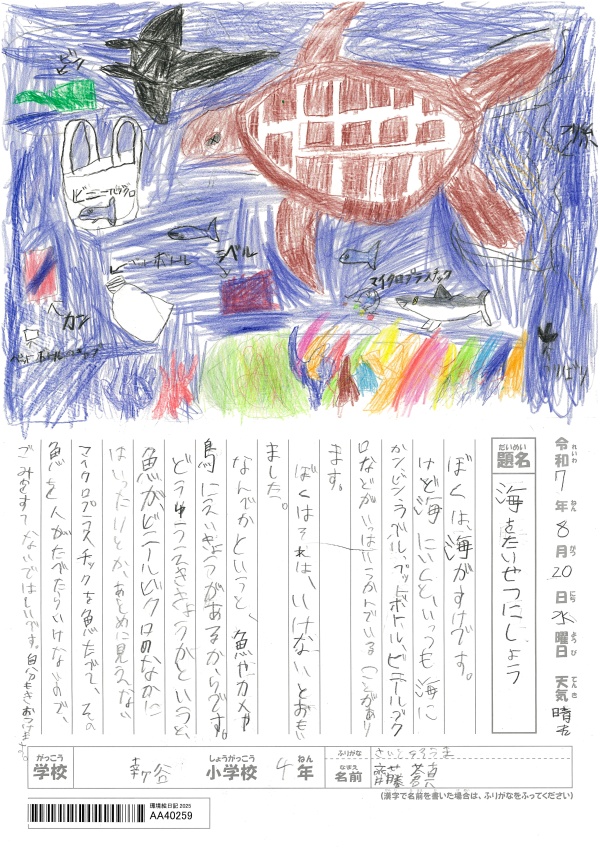 ビン
ビニールブクロ
つり糸
ペットボトル
ラベル
マイクロプラスチック
カン
ペットボトルのキャップ
つりばり
令和7年8月20日水曜日 天気 晴れ
れいわ ねん がつ にち ようび てんき
だいめい
題名 海をたいせつにしょう
ぼくは、海がすきです。
けど海にいくといつも海に
カン、ビン、ラベル、ペットボトル、ビニールブク
ロなどがいっぱいうかんでいることがあり
ます。
ぼくはそれは、いけないとおもい
ました。
なんでかというと、魚やカメや
鳥にえいきょうがあるからです。
どうゆうえいきょうかというと、
魚が、ビニールブクロのなかに
はいったりとか、あとめに見えない
マイクロプラスチックを魚がたべて、その
魚を人がたべたらいけないので、
ごみをすてないでほしいです。自分もきおつけます。
がっこう しょうがっこう ねん
学校 幸ヶ谷 小学校 4年
ふりがな さいとうそうま
なまえ
名前 齋藤蒼真
(漢字で名前を書いた場合は、ふりがなをふってください)
環境絵日記 2025
AA40259